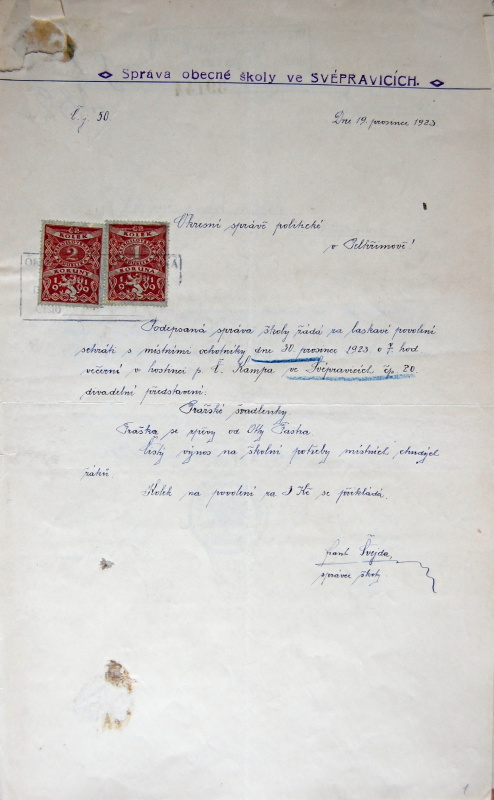 Správa obecné školy ve SVÉPRAVICÍCH.
Č.j. 50.
Dne 19. prosince 1923.
Okresní správě politické
v Pelhřimově!
KOLEK
2
KORUNY
KOLEK
1
KORUNA
Podepsaná správa školy žádá za laskavé povolení
sehráti s místními ochotníky dne 30. prosince 1923 o 7. hod
večerní v hostinci p. Č. Kampa ve Svépravicích čp. 20.
divadelní představení.
Pražské švadlenky.
Fraška se zpěvy od Otty Fastra.
Čistý výnos na školní potřeby místních chudých
žáků.
Kolek na povolení za 1 Kč se přikládá.
Frant. Švejda,
správce školy.